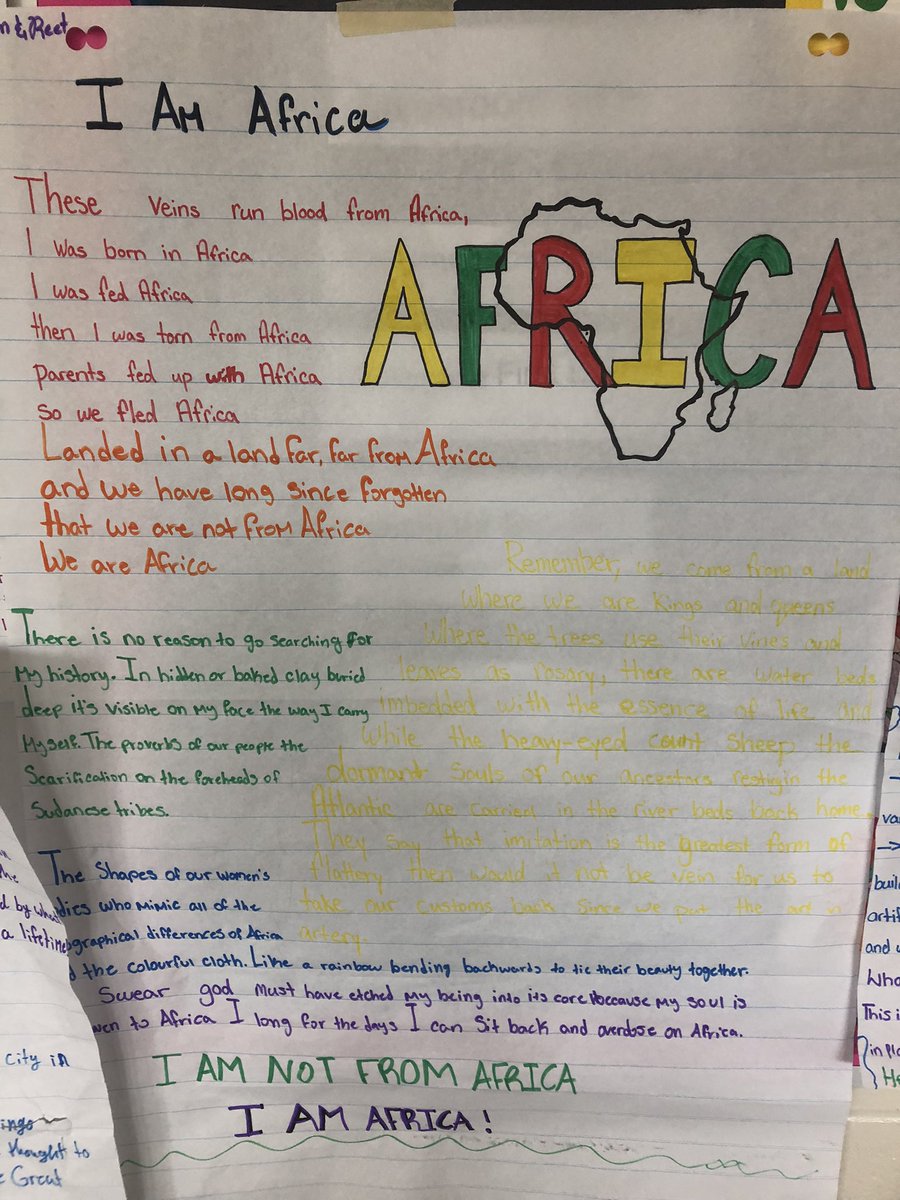 n & Reet
I Am Africa
These veins run blood from Africa,
I was born in Africa
I was fed Africa
then I was torn from Africa
parents fed up with Africa
So we fled Africa
AFRICA
Landed in a land far, far from Africa
and we have long since forgotten
that we are not from Africa
We are Africa
Remember, we come from a land
where we are Kings and queens
where the trees use their vines and
leaves as rosary, there are water beds
imbedded with the essence of life and
While the heavy-eyed count sheep the
dormant souls of our ancestors restign the
Atlantic are carried in the river beds back home.
They say that imitation is the greatest form of
flattery then would it not be vein for us to
take our customs back since we put the art n
artery.
There is no reason to go searching for
My history. In hidden or baked clay buried
deep it's visible on my face the way I carry
Myself. The proverbs of our people the
Scarification on the foreheads of
Sudanese tribes.
The Shapes of our women's
dies who mimic all of the
ographical differences of Africa
d the colourful cloth. Like a rainbow bending backwards to tie their beauty together.
Swear god must have etched my being into its core because my soul is
ven to Africa I long for the days I can Sit back and overdose on Africa.
I AM NOT FROM AFRICA
I AM AFRICA!
he
d by wha
a lifetime
city in
ings
thought to
e Great
va
buil
artif
and u
Who
This i
in pla
He